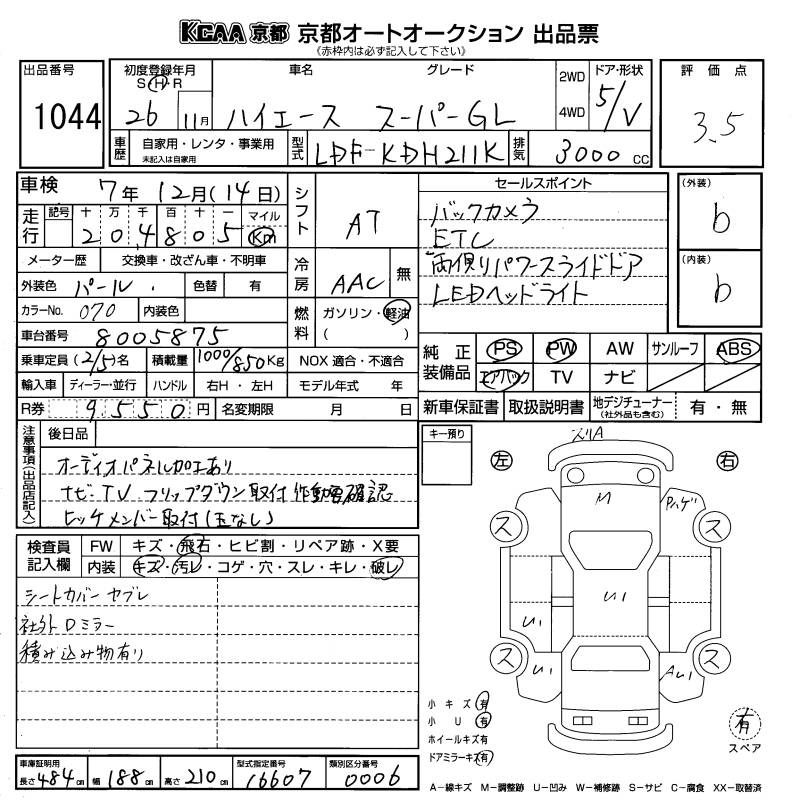 KCAA 京都 京都オートオークション 出品票
(赤枠内は必ず記入して下さい)
出品番号
1044
初度登録年月
S H R
26 11月
車名 グレード
ハイエース スーパーGL
2WD
4WD
ドア・形状
5/V
評価点
3.5
車歴
自家用・レンタ・事業用
未記入は自家用
型式
LDF-KDH211K
排気
3000 cc
車検 7年 12月(14日)
走行
記号 十 万 千 百 十 一 マイル
2 0 4 8 0 5 Km
メーター歴 交換車・改ざん車・不明車
外装色 パール 色替 有
カラーNo. 070 内装色
車台番号 8005875
乗車定員 (2/5)名 積載量 1000/850Kg NOX 適合・不適合
輸入車 ディーラー・並行 ハンドル 右H・左H モデル年式 年
R券 9550円 名変期限 月 日
シフト
AT
冷房
AAC 無
燃料
ガソリン・軽油
( )
セールスポイント
バックカメラ
ETC
両側パワースライドドア
LEDヘッドライト
(外装)
b
(内装)
b
純正装備品
PS PW AW サンルーフ ABS
エアバック TV ナビ
新車保証書 取扱説明書 地デジチューナー(社外品も含む) 有・無
注意事項(出品店記入)
後日品
オーディオパネル加工あり
ナビ・TV フリップダウン取付 作動要確認
ヒッチメンバー取付(玉なし)
検査員記入欄
FW キズ・飛石・ヒビ割・リペア跡・X要
内装 キズ・汚レ・コゲ・穴・スレ・キレ・破レ
シートカバー ヤブレ
社外Dミラー
積み込み物有り
キー預り
スリA
左 右
M
Pハゲ
ス ス
U1
U1
ス ス
U1
AU1
小キズ 有
小U 有
ホイールキズ 有
ドアミラーキズ 有
有
スペア
車庫証明用
長さ 484cm 幅 188cm 高さ 210cm
型式指定番号
16607
類別区分番号
0006
A―線キズ M―調整跡 U―凹み W―補修跡 S―サビ C―腐食 XX―取替済